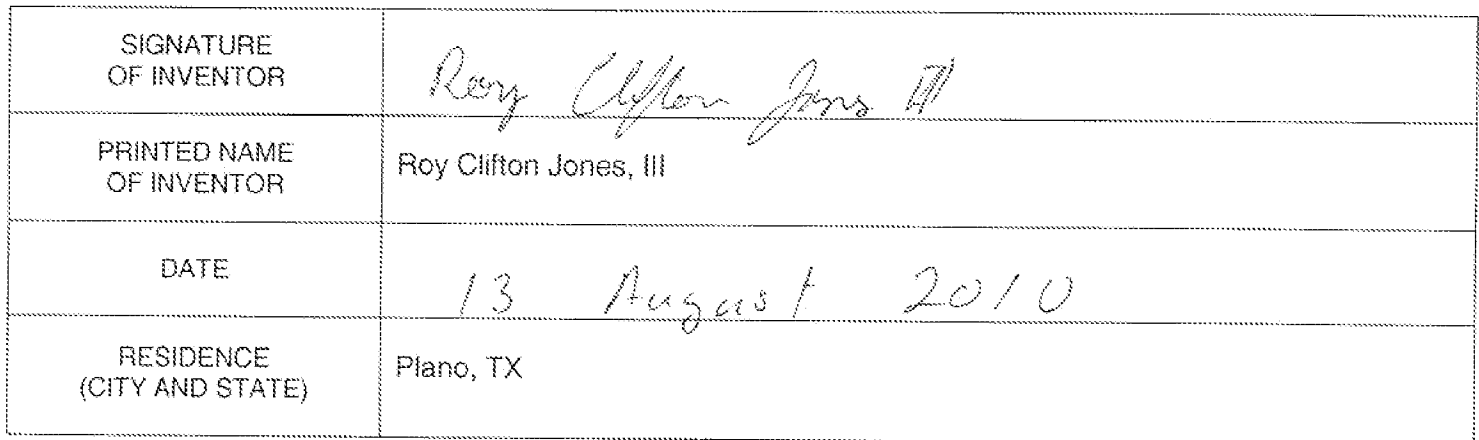 SIGNATURE
OF INVENTOR
Roy Clifton Jones III
PRINTED NAME
OF INVENTOR
Roy Clifton Jones, III
DATE
13 August 2010
RESIDENCE
(CITY AND STATE)
Plano, TX